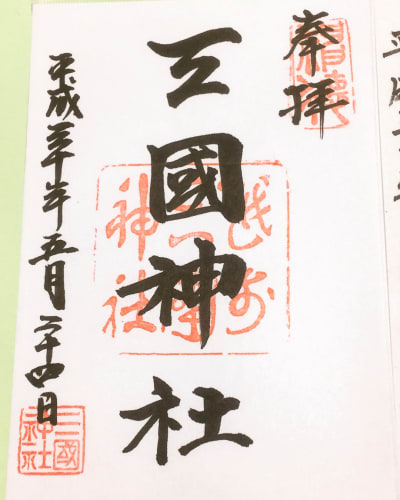 奉拝
三國神社
越前
三國
神社
平成三十年五月二十四日
三國
神社